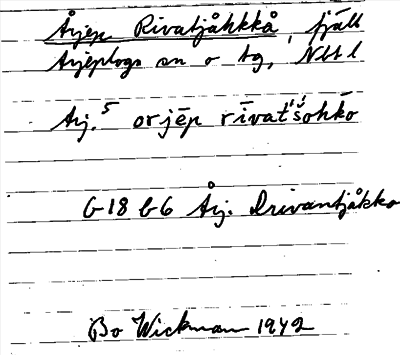 Årjep Rivatjåhkkå, fjäll
Arjeplogs sn o tg, Nbt l
Arj. 5 orjēp rīvat'š́ohkō
G 18 b 6 Årj. Drivantjåkko
Bo Wickman 1942